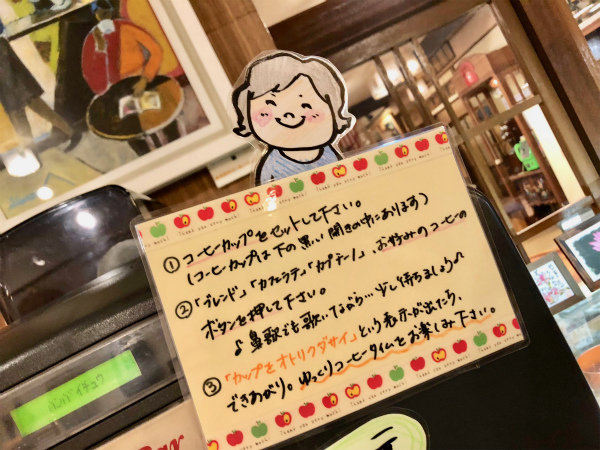 ① コーヒーカップをセットして下さい。
(コーヒーカップは下の黒い開きの中にあります)
② 「ブレンド」「カフェラテ」「カプチーノ」、お好みのコーヒーの
ボタンを押して下さい。
♪鼻歌でも歌いながら…少し待ちましょう♪
③ 「カップをオトリクダサイ」という表示が出たら、
できあがり。ゆっくりコーヒータイムをお楽しみ下さい。
ハンバイチュウ
Thank you very much!